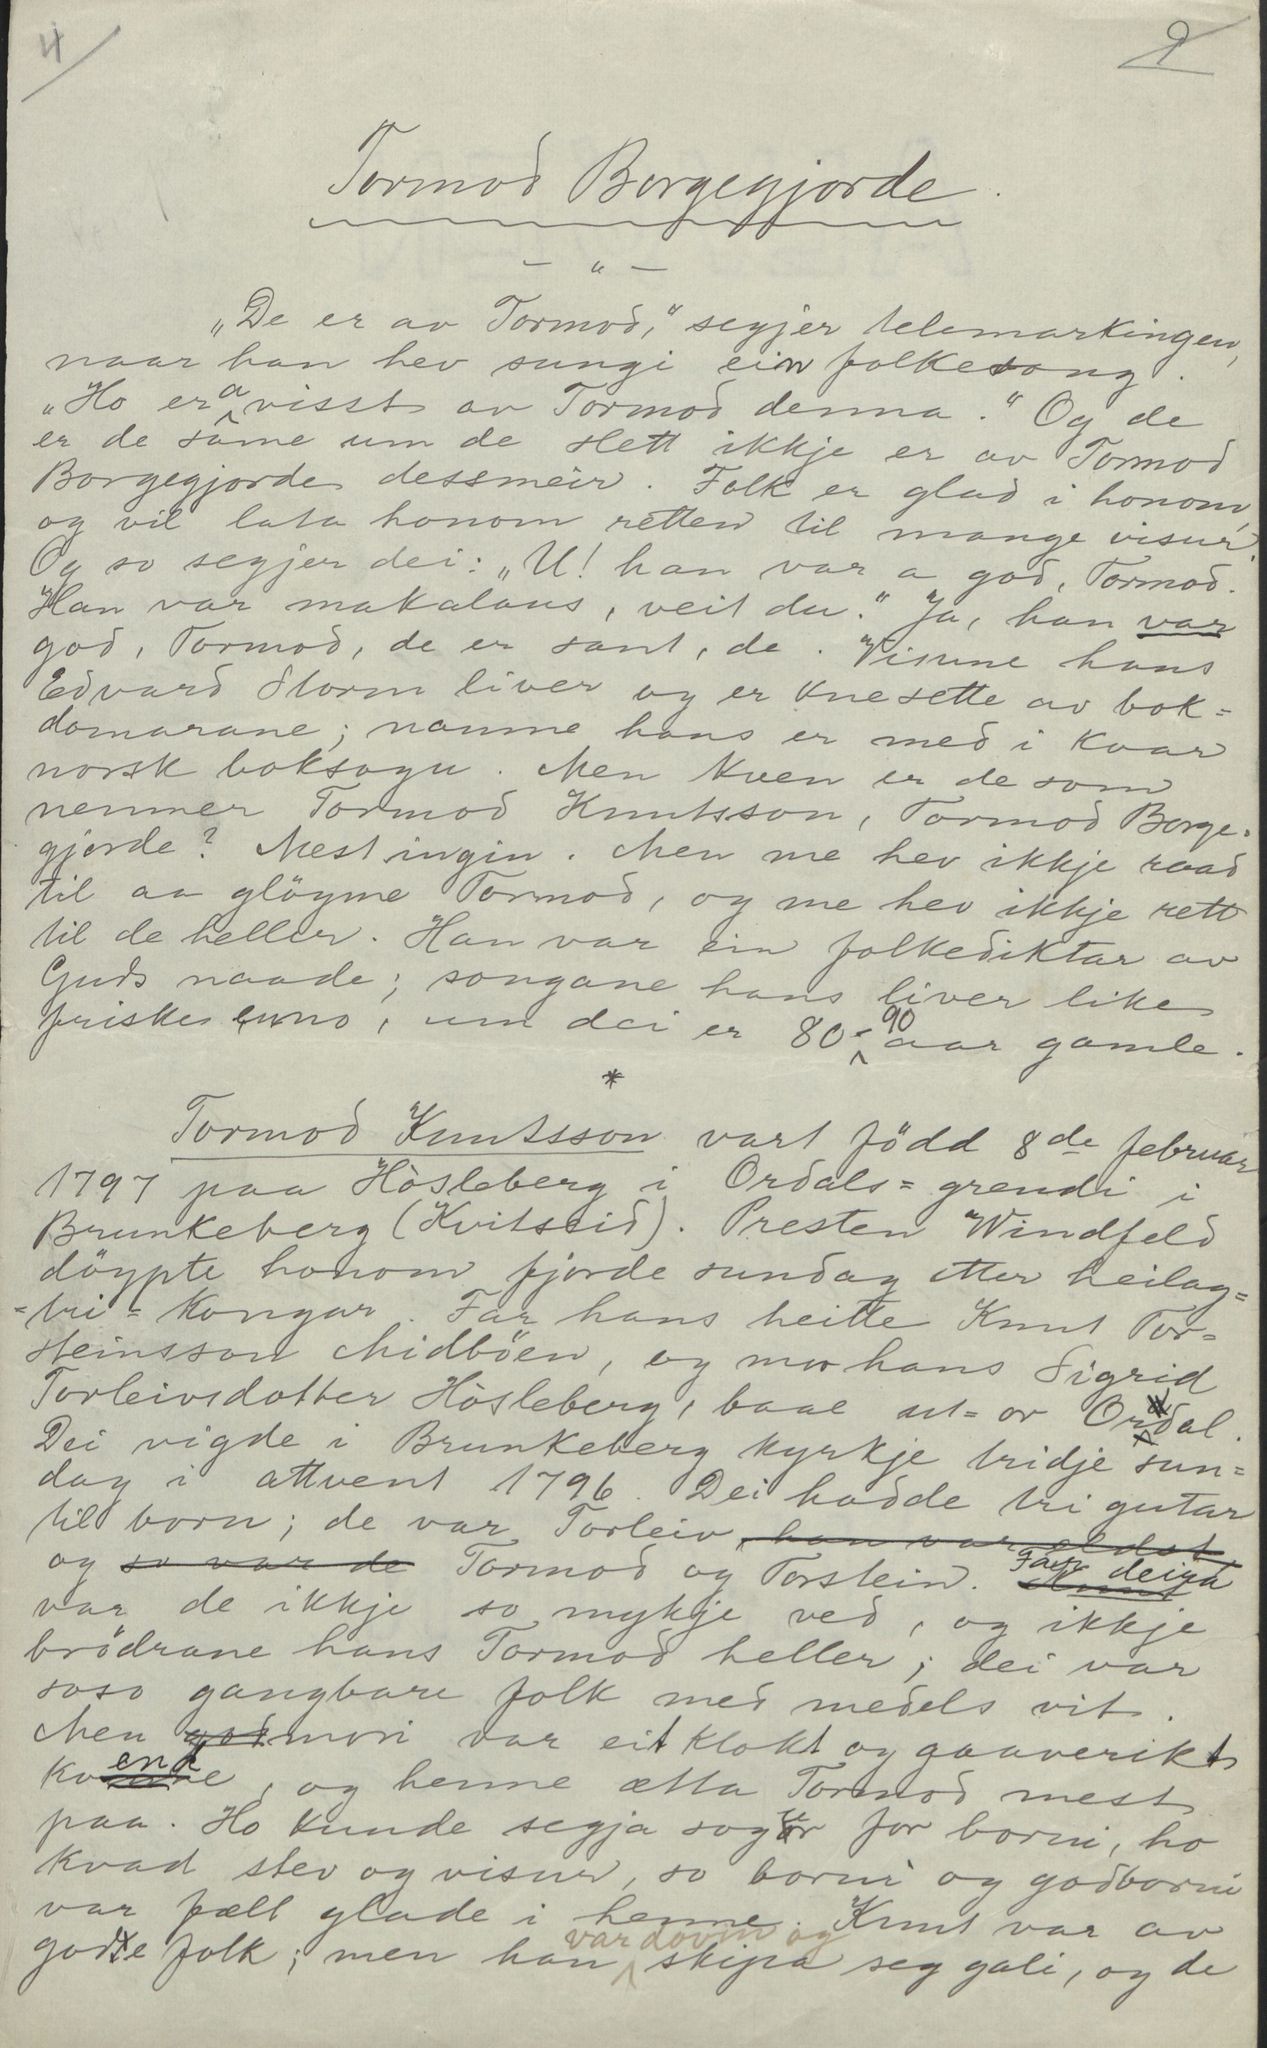 4
9
Tormod Borgegjorde.
— " —
„De er av Tormod," segjer telemarkingen,
naar han hev sungi ein folkesong.
„Ho er a visst av Tormod denna." Og de
er de same um de slett ikkje er av Tormod
Borgegjorde dessmeir. Folk er glad i honom,
og vil lata honom retten til mange visur.
Og so segjer dei: „U! han var a god, Tormod.
Han var makalaus, veit du." Ja, han var
god, Tormod, de er sant, de. Visune hans
Edvard Storm liver og er knesette av bok=
domarane; namne hans er med i kvar
norsk boksogu. Men kven er de som
nemner Tormod Knutsson, Tormod Borge=
gjorde? Mest ingin. Men me hev ikkje raad
til aa glöyme Tormod, og me hev ikkje rett
til de heller. Han var ein folkediktar av
Guds naade; songane hans liver like
friske enno, um dei er 80-90 aar gamle.
*
Tormod Knutsson vart född 8de februar
1797 paa Hòsleberg i Ordals=grendi i
Brunkeberg (Kvitseid). Presten Windfeld
döypte honom fjorde sundag etter heilag=
=tri=kongar. Far hans heitte Knut Tor=
steinsson Midböen, og mor hans Sigrid
Torleivsdotter Hòsleberg, baae ut=or Ordal.
Dei vigde i Brunkeberg kyrkje tridje sun=
dag i attvent 1796. Dei hadde tri gutar
til born; de var Torleiv, han var eldst
og so var de Tormod og Torstein. Far deira
var de ikkje so mykje ved, og ikkje
brödrane hans Tormod heller; dei var
soso gangbare folk med medels vit.
Men god mori var eit klokt og gaaverikt
kvende, og henne ætta Tormod mest
paa. Ho kunde segja sogur for borni, ho
kvad stev og visur, so borni og godborni
var fælt glade i henne. Knut var av
gode folk; men han var doven og skipa seg gali, og de